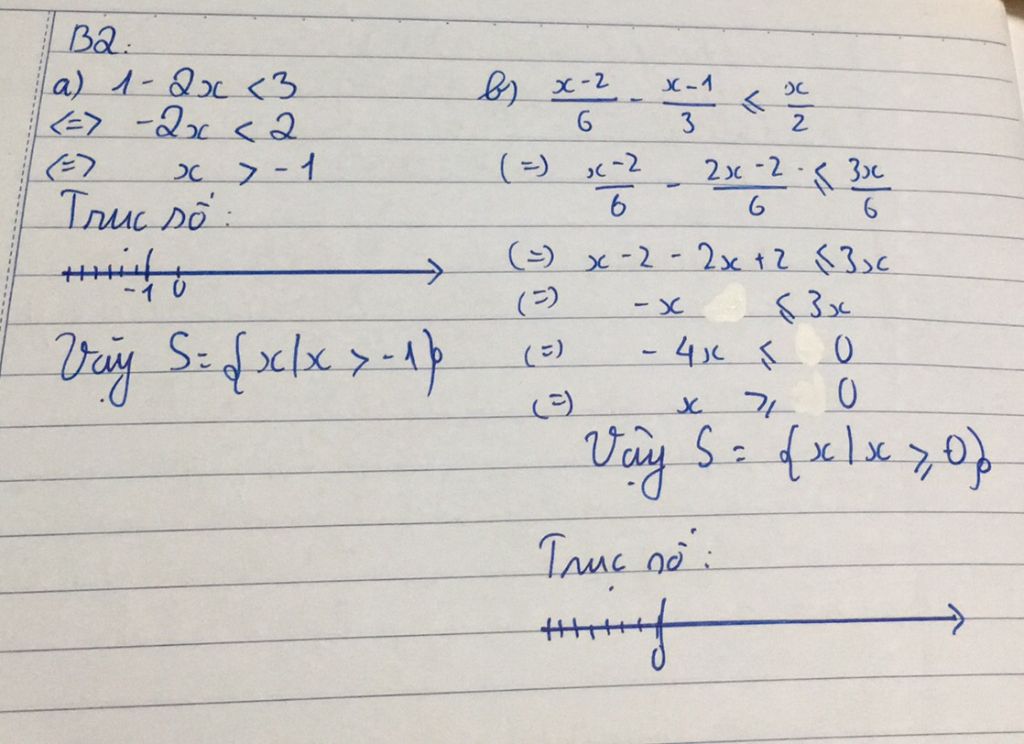 B2:
a) 1 - 2x < 3
<=> -2x < 2
<=> x > -1
Trục số:
-1 0
Vậy S = {x | x > -1}
b) (x-2)/6 - (x-1)/3 ≤ x/2
(=) (x-2)/6 - (2x-2)/6 ≤ 3x/6
(=) x - 2 - 2x + 2 ≤ 3x
(=) -x ≤ 3x
(=) -4x ≤ 0
(=) x ≥ 0
Vậy S = {x | x ≥ 0}
Trục số:
0